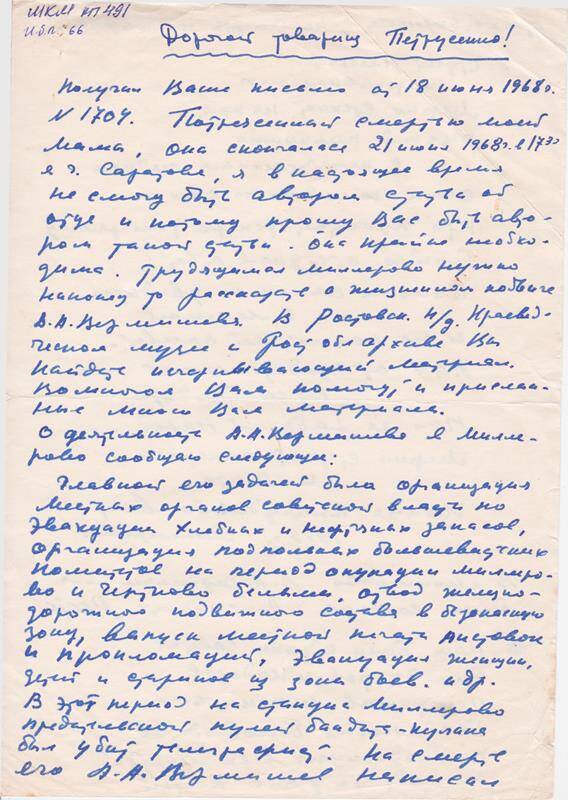 МКМ КП 491
И.б.п. 66
Дорогой товарищ Петрусенко!
Получил Ваше письмо от 18 июня 1968 г.
N 1704. Потрясенный смертью моей
мамы, она скончалась 21 июня 1968 г. в 17 30
в г. Саратове, я в настоящее время
не смогу быть автором статьи об
отце и потому прошу Вас быть авто-
ром такой статьи. Она крайне необхо-
дима. Трудящимся Миллерово нужно
наконец то рассказать о жизненном подвиге
А.А. Вермишева. В Ростовск. Н/Д. Краевед-
ческом музее и Рост обл архиве Вы
найдете исчерпывающий материал.
Во многом Вам помогут и прислан-
ные мною Вам материалы.
О деятельности А.А. Вермишева в Милле-
рово сообщаю следующее:
Главной его задачей была организация
местных органов советской власти по
эвакуации хлебных и нефтяных запасов,
организация подпольных большевистских
комитетов на период оккупации Миллеро-
во и Чертково белыми, отвод железно-
дорожного подвижного состава в безопасную
зону, выпуск местной печати листовок
и прокламаций, эвакуация женщин,
детей и стариков из зоны боев. и др.
В этот период на станции Миллерово
предательской пулей бандита-кулака
был убит телеграфист. На смерть
его А.А. Вермишев написал